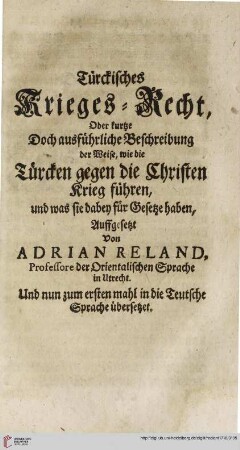 Türckisches
Krieges-Recht,
Oder kurtze
Doch ausführliche Beschreibung
der Weise, wie die
Türcken gegen die Christen
Krieg führen,
und was sie dabey für Gesetze haben,
Auffgesetzt
Von
ADRIAN RELAND,
Professore der Orientalischen Sprache
in Utrecht.
Und nun zum ersten mahl in die Teutsche
Sprache übersetzet.